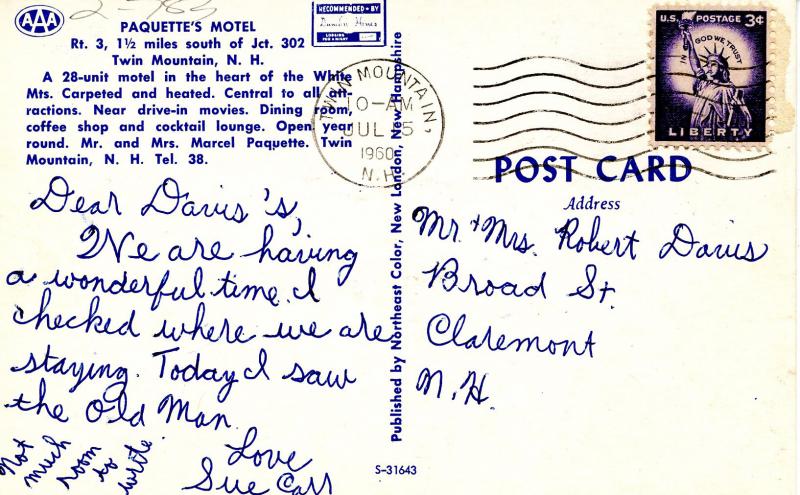 AAA
2-783
PAQUETTE'S MOTEL
Rt. 3, 1½ miles south of Jct. 302
Twin Mountain, N. H.
A 28-unit motel in the heart of the White
Mts. Carpeted and heated. Central to all att-
ractions. Near drive-in movies. Dining room,
coffee shop and cocktail lounge. Open year
round. Mr. and Mrs. Marcel Paquette. Twin
Mountain, N. H. Tel. 38.
RECOMMENDED • BY
Duncan Hines
LODGING
FOR A NIGHT
TWIN MOUNTAIN,
10-AM
JUL
1960
N.H.
U.S. POSTAGE 3¢
IN GOD WE TRUST
LIBERTY
POST CARD
Address
Mr. & Mrs. Robert Davis
Broad St.
Claremont
N.H.
Dear Davis's,
We are having
a wonderful time. I
checked where we are
staying. Today I saw
the Old Man.
Love
Sue Carr
Not
much
room
to
write
Published by Northeast Color, New London, New Hampshire
S-31643